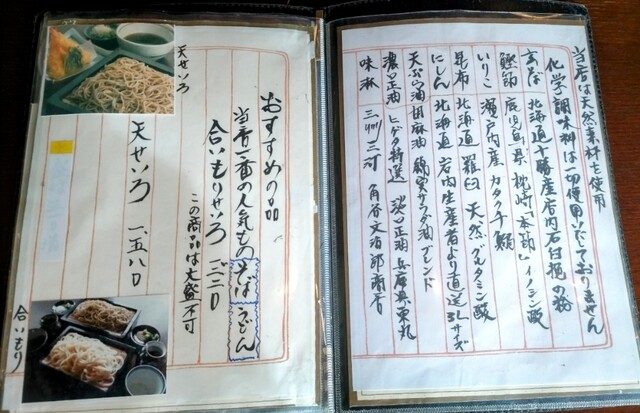 当店は天然素材を使用
化学調味料は一切使用いたしておりません
玄そば 北海道十勝産店内石臼挽の粉
鰹節 鹿児島県枕崎「本節」イノシン酸
いりこ 瀬戸内産カタクチ鰯
昆布 北海道羅臼天然グルタミン酸
にしん 北海道岩内生産者より直送3Lサイズ
天ぷら油 胡麻油 綿実サラダ油ブレンド
濃口正油 ヒゲタ特選 淡口正油 兵庫県東丸
味淋 三州三河 角谷文治郎商店
おすすめの品
当店一番の人気もの そば うどん
合いもりせいろ
この商品は大盛不可
天せいろ 一、五八〇
天せいろ
合いもり